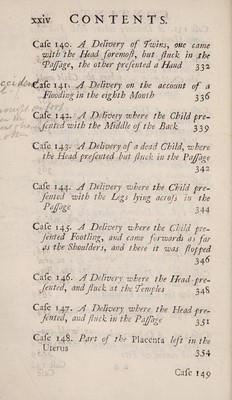 xxiv CONTENTS.
Caſe 140. A Delivery of Twins, one came
with the Head foremoſt, but ſtuck in the
Paſſage, the other preſented a Hand 332
Caſe 141. A Delivery on the account of a
Flooding in the eighth Month 336
Caſe 142. A Delivery where the Child pre-
ſented with the Middle of the Back 339
Caſe 143. A Delivery of a dead Child, where
the Head preſented but ſtuck in the Paſſage
342
Caſe 144. A Delivery where the Child pre-
ſented with the Legs lying acroſs in the
Paſſage 344
Caſe 145. A Delivery where the Child pre-
ſented Footling, and came forwards as far
as the Shoulders, and there it was ſtopped
346
Caſe 146. A Delivery where the Head pre-
ſented, and ſtuck at the Temples 348
Caſe 147. A Delivery where the Head pre-
ſented, and ſtuck in the Paſſage 351
Caſe 148. Part of the Placenta left in the
Uterus 354
Caſe 149